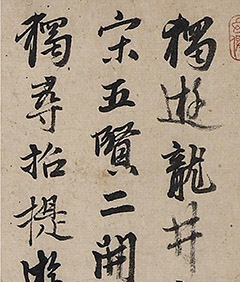 獨遊龍井
宋五賢二開
獨尋招提